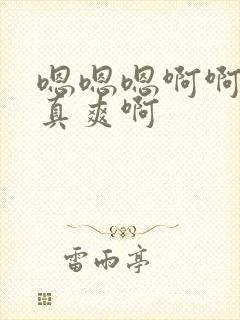 嗯嗯嗯啊啊
真爽啊
雷雨亭